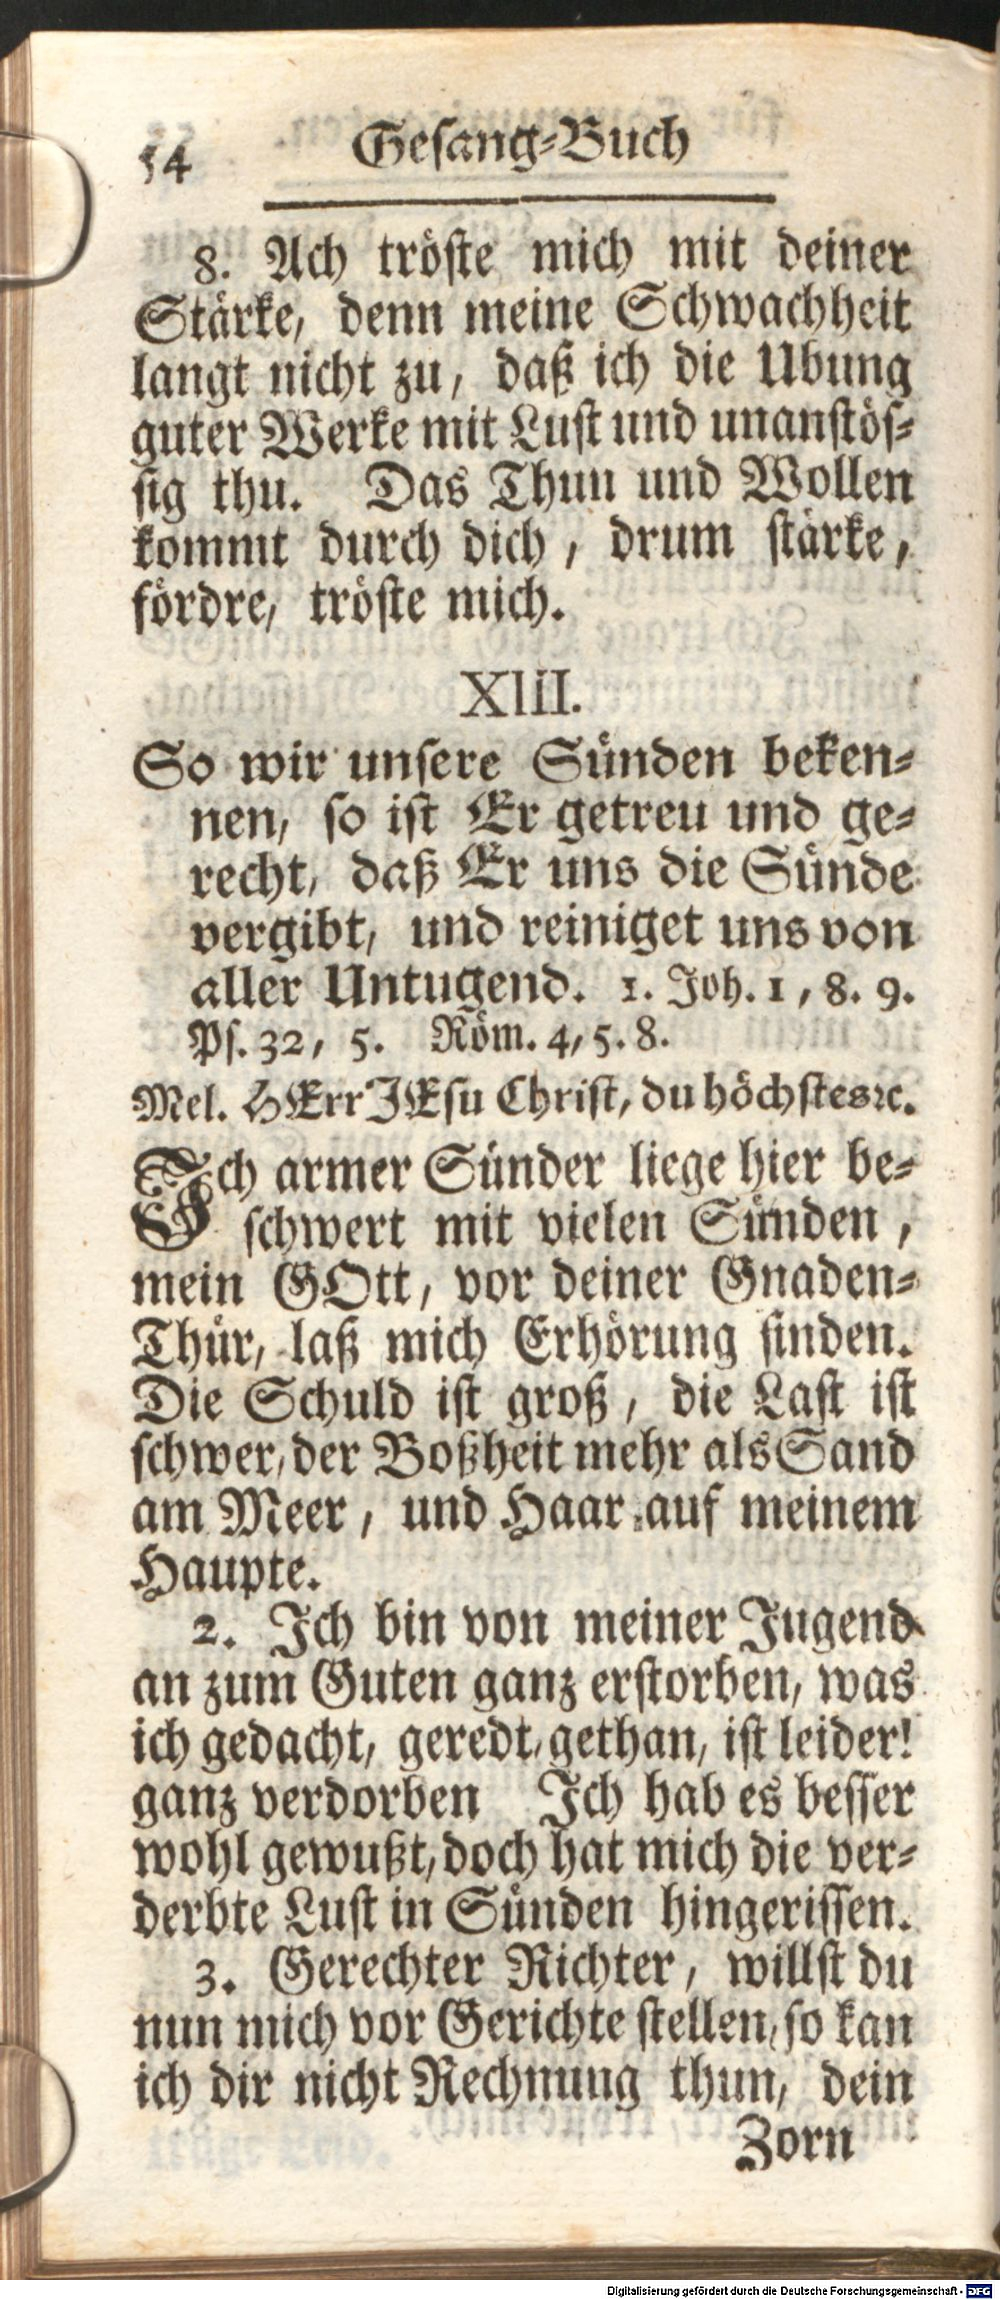 54 Gesang-Buch
8. Ach tröste mich mit deiner
Stärke, denn meine Schwachheit
langt nicht zu, daß ich die Ubung
guter Werke mit Lust und unanstös-
sig thu. Das Thun und Wollen
kommt durch dich, drum stärke,
fördre, tröste mich.
XIII.
So wir unsere Sünden beken-
nen, so ist Er getreu und ge-
recht, daß Er uns die Sünde
vergibt, und reiniget uns von
aller Untugend. 1. Joh. 1, 8. 9.
Ps. 32, 5. Röm. 4, 5. 8.
Mel. HErr JEsu Christ, du höchstes ꝛc.
Ich armer Sünder liege hier be-
schwert mit vielen Sünden,
mein GOtt, vor deiner Gnaden-
Thür, laß mich Erhörung finden.
Die Schuld ist groß, die Last ist
schwer, der Boßheit mehr als Sand
am Meer, und Haar auf meinem
Haupte.
2. Ich bin von meiner Jugend
an zum Guten ganz erstorben, was
ich gedacht, geredt, gethan, ist leider!
ganz verdorben Ich hab es besser
wohl gewußt, doch hat mich die ver-
derbte Lust in Sünden hingerissen.
3. Gerechter Richter, willst du
nun mich vor Gerichte stellen, so kan
ich dir nicht Rechnung thun, dein
Zorn
Digitalisierung gefördert durch die Deutsche Forschungsgemeinschaft - DFG